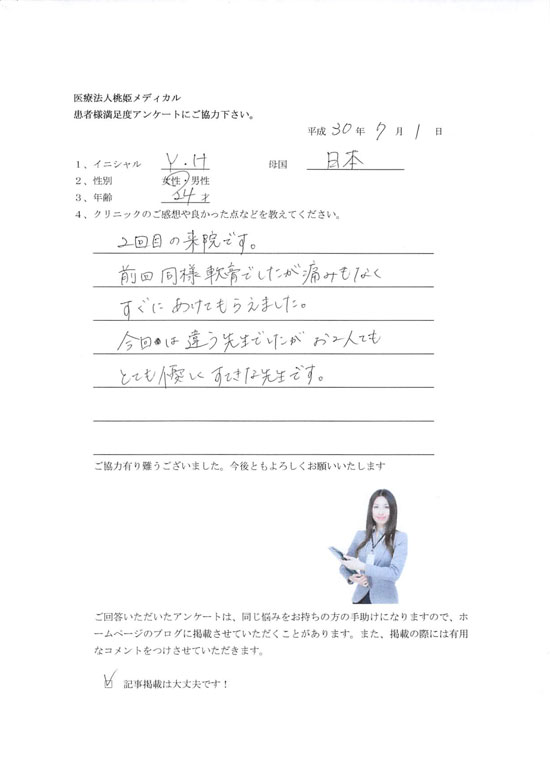 医療法人桃姫メディカル
患者様満足度アンケートにご協力下さい。
平成 30 年 7 月 1 日
1、イニシャル Y.H 母国 日本
2、性別 女性・男性
3、年齢 24才
4、クリニックのご感想や良かった点などを教えてください。
2回目の来院です。
前回同様軟膏でしたが痛みもなく
すぐにあけてもらえました。
今回は違う先生でしたがお2人ても
とても優しくすてきな先生です。
ご協力有り難うございました。今後ともよろしくお願いいたします
ご回答いただいたアンケートは、同じ悩みをお持ちの方の手助けになりますので、ホ
ームページのブログに掲載させていただくことがあります。また、掲載の際には有用
なコメントをつけさせていただきます。
記事掲載は大丈夫です！